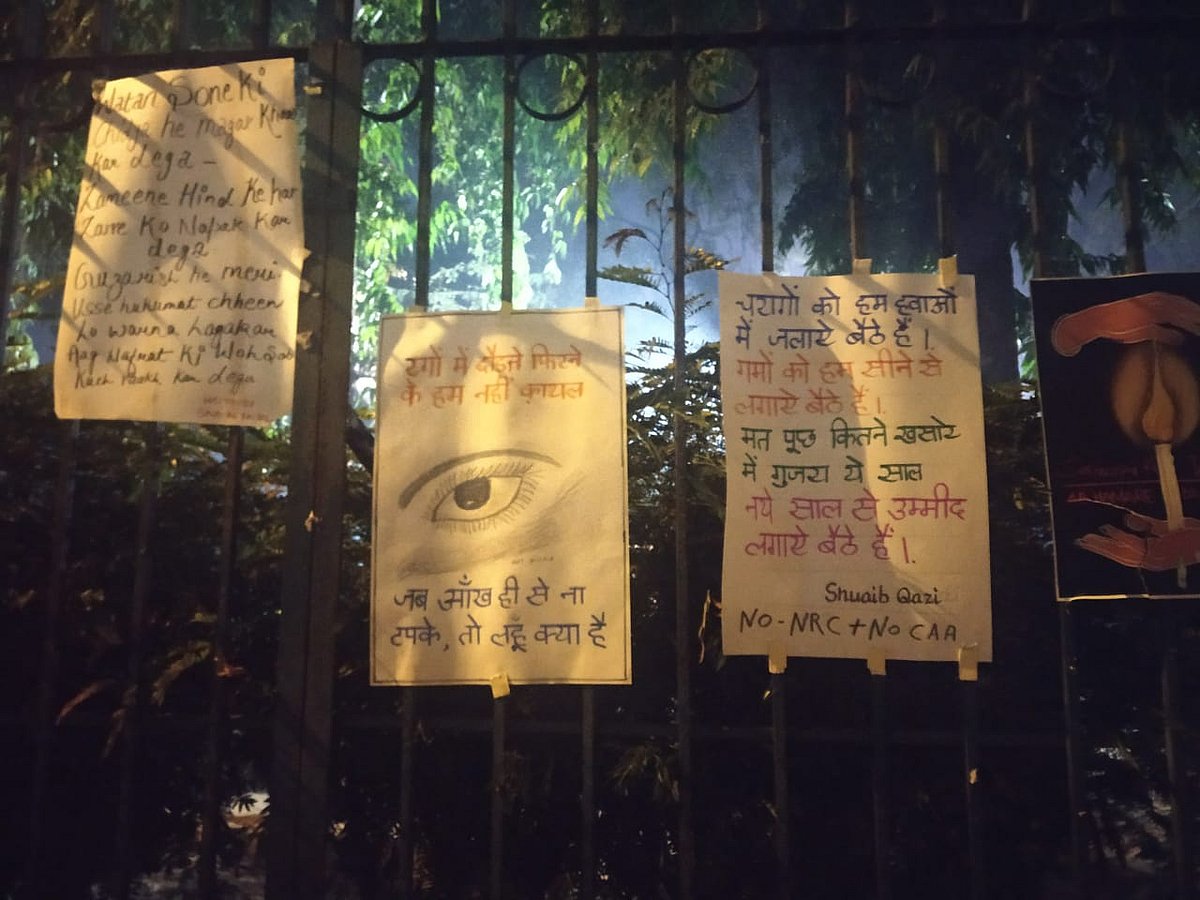 Watan Sone Ki
Chidya he magar Khaak
Kar dega -
Zameene Hind Ke har
Zarre Ko Napak Kar
dega
Guzarish he meri
Usse hukumat chheen
Lo warna Lagakar
Aag Nafrat Ki Woh Sab
Kuch Raakh Kar dega
रगों में दौड़ते फिरने
के हम नहीं क़ायल
जब आँख ही से ना
टपके, तो लहूँ क्या है
चरागों को हम हवाओं
में जलाऐ बैठे हैं।
गमों को हम सीने से
लगाऐ बैठे हैं।
मत पूछ कितने खसारे
में गुजरा ये साल
नये साल से उम्मीद
लगाऐ बैठे हैं।
Shuaib Qazi
NO-NRC + NO CAA